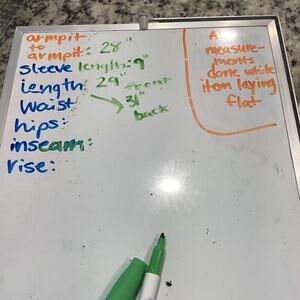 armpit
to
armpit: 28"
sleeve length: 9"
length: 29" front
31"
back
waist
hips:
inseam:
rise:
All
measure-
ments
done while
item laying
flat